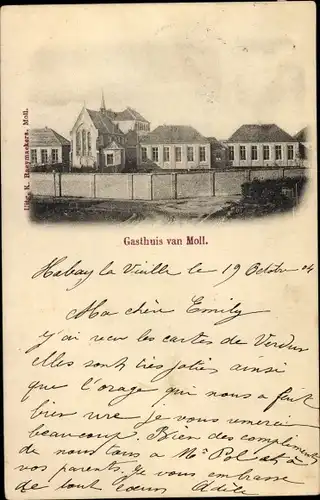 Uitg. K. Raeymaekers, Moll.
Gasthuis van Moll.
Habay la Vieille le 19 Octobre 04
Ma chère Emily
J'ai reçu les cartes de Verdun
Elles sont très jolies ainsi
que l'orage qui nous a fait
bien rire je vous remercie
beaucoup. Bien des compliments
de nous tous à Mr Pol et à
vos parents. Je vous embrasse
de tout cœur Adèle